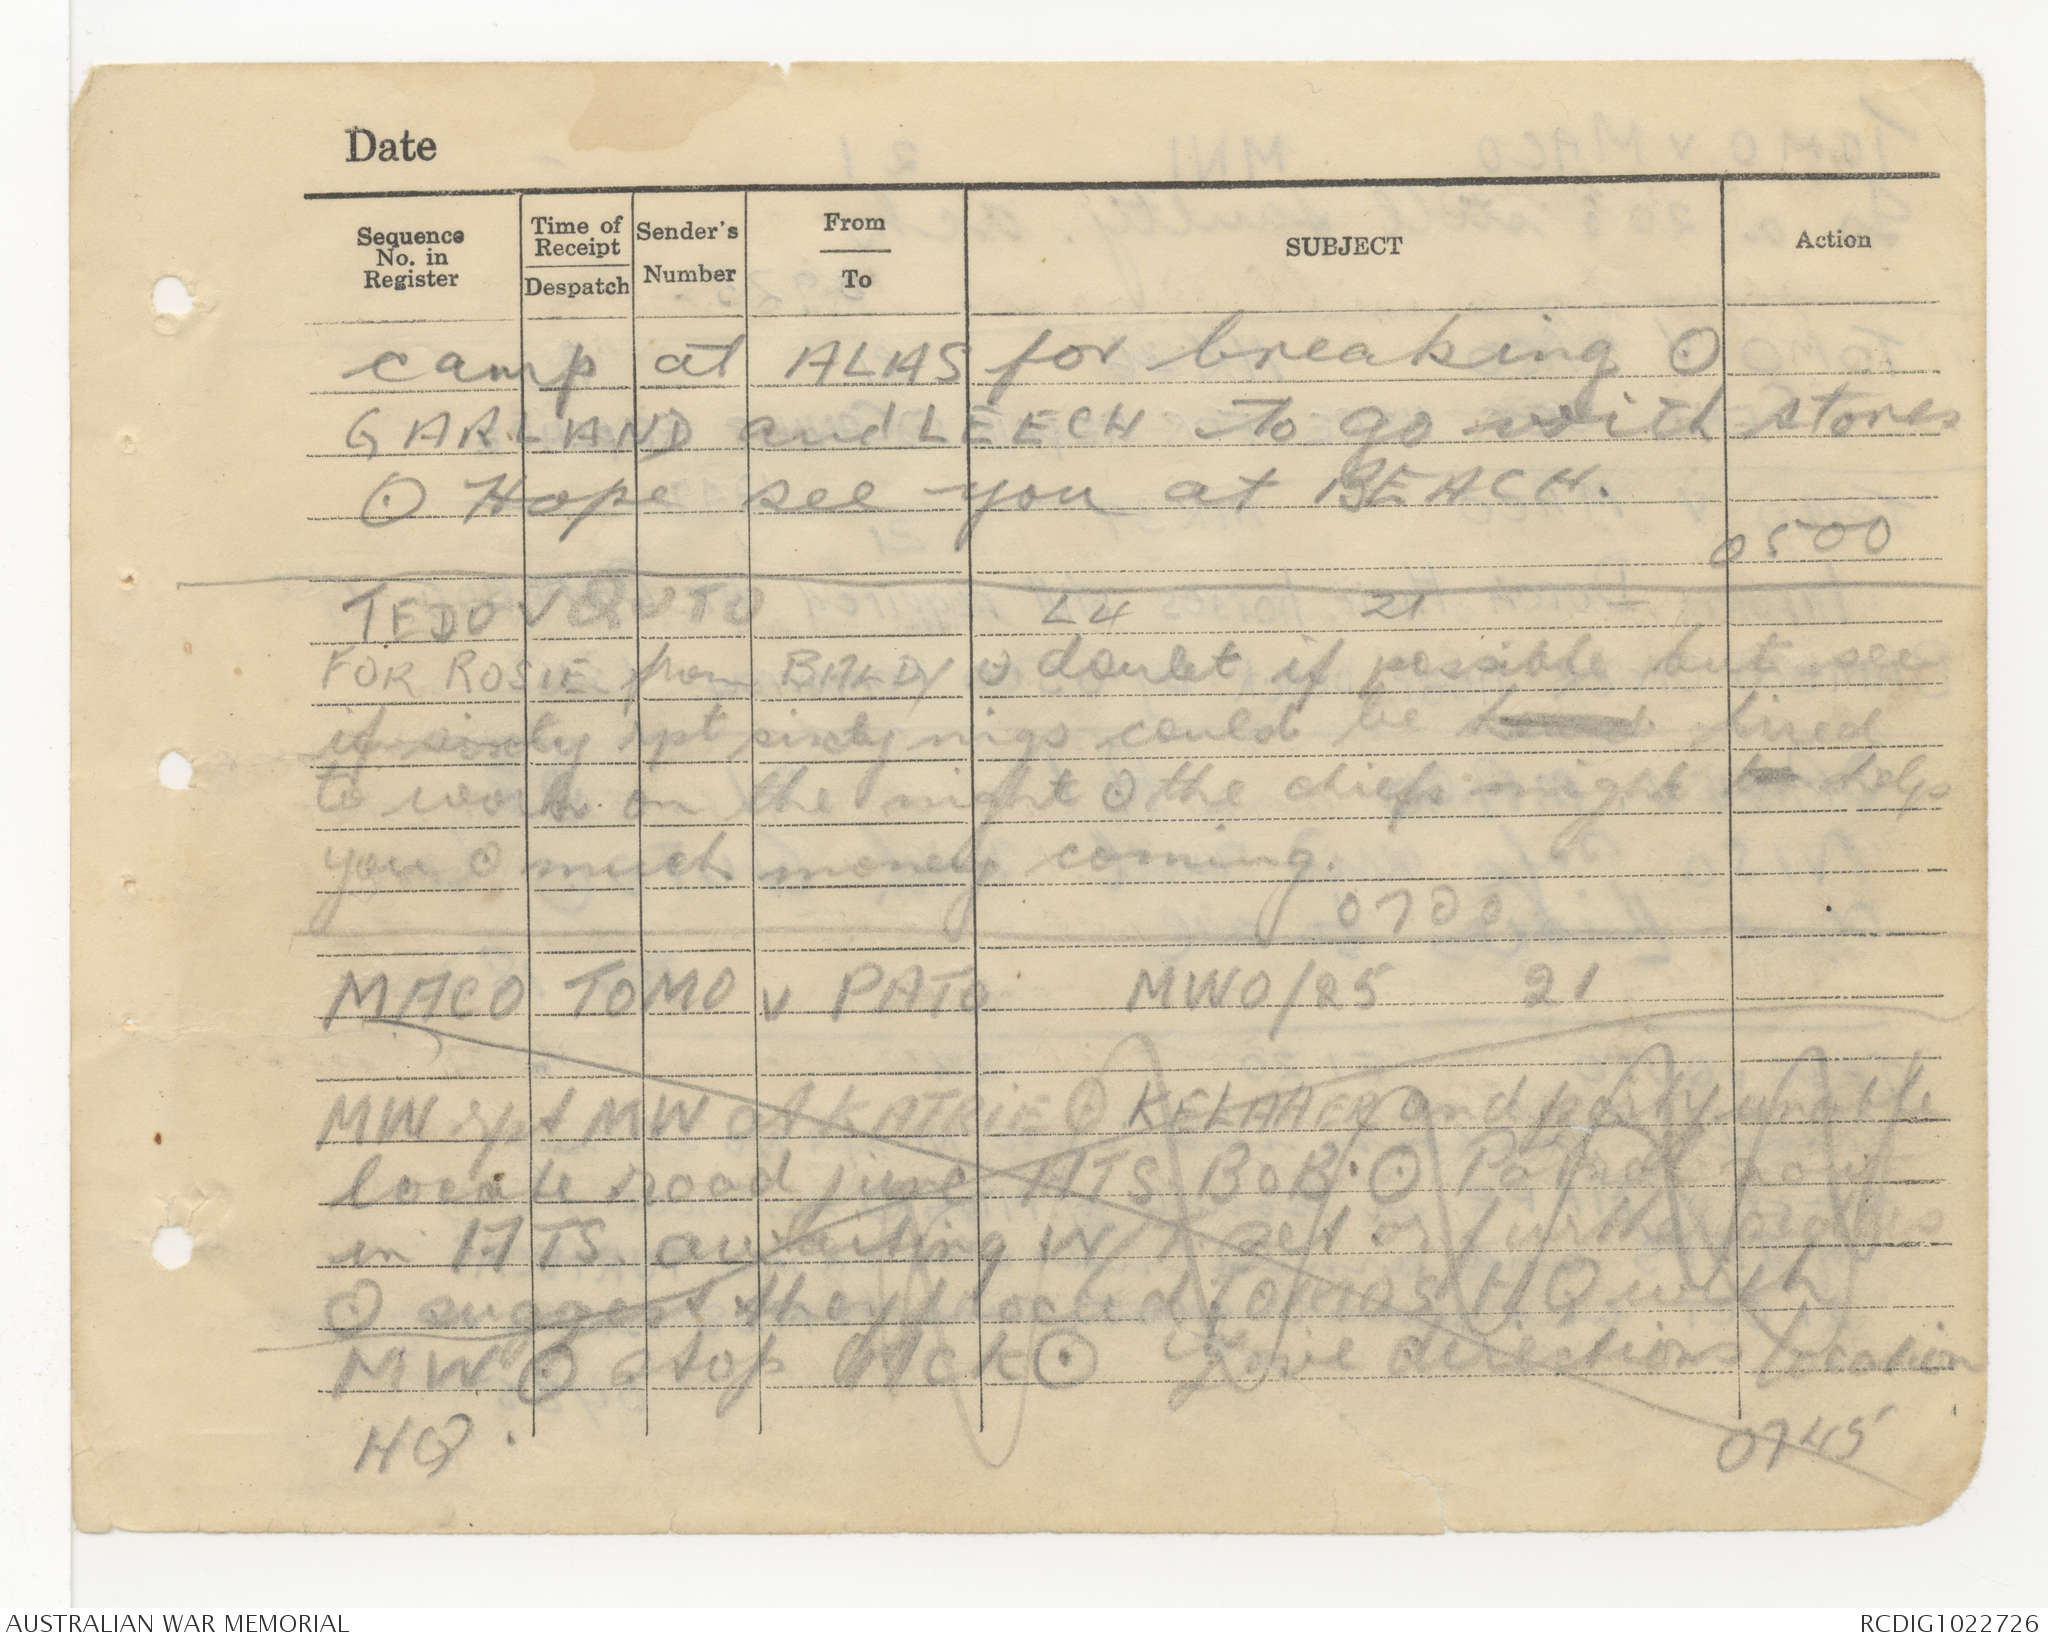 Date
Sequence No. in Register
Time of Receipt
Despatch
Sender's Number
From
To
SUBJECT
Action
camp at ALIAS for breaking ⊙
GARLAND and LEECH to go with stores
⊙ Hope see you at BEACH.
0500
TEDO V QUTO L4 21
FOR ROSIE from BALDY ⊙ doubt if possible but see
if sixty rpt sixty nigs could be hired
to work on the night ⊙ the chiefs might help
you ⊙ much money coming.
0700
MACO TOMO v PATO MWO/25 21
MW rpt MW at KATRIE ⊙ KELAHER and party unable
locate road junc ATS BOB. ⊙ Patrol now
in ATS awaiting W/T set or further
⊙ suggest they proceed HQ with
MW ⊙ stop Ack ⊙ give directions location
HQ.
0745
AUSTRALIAN WAR MEMORIAL
RCDIG1022726